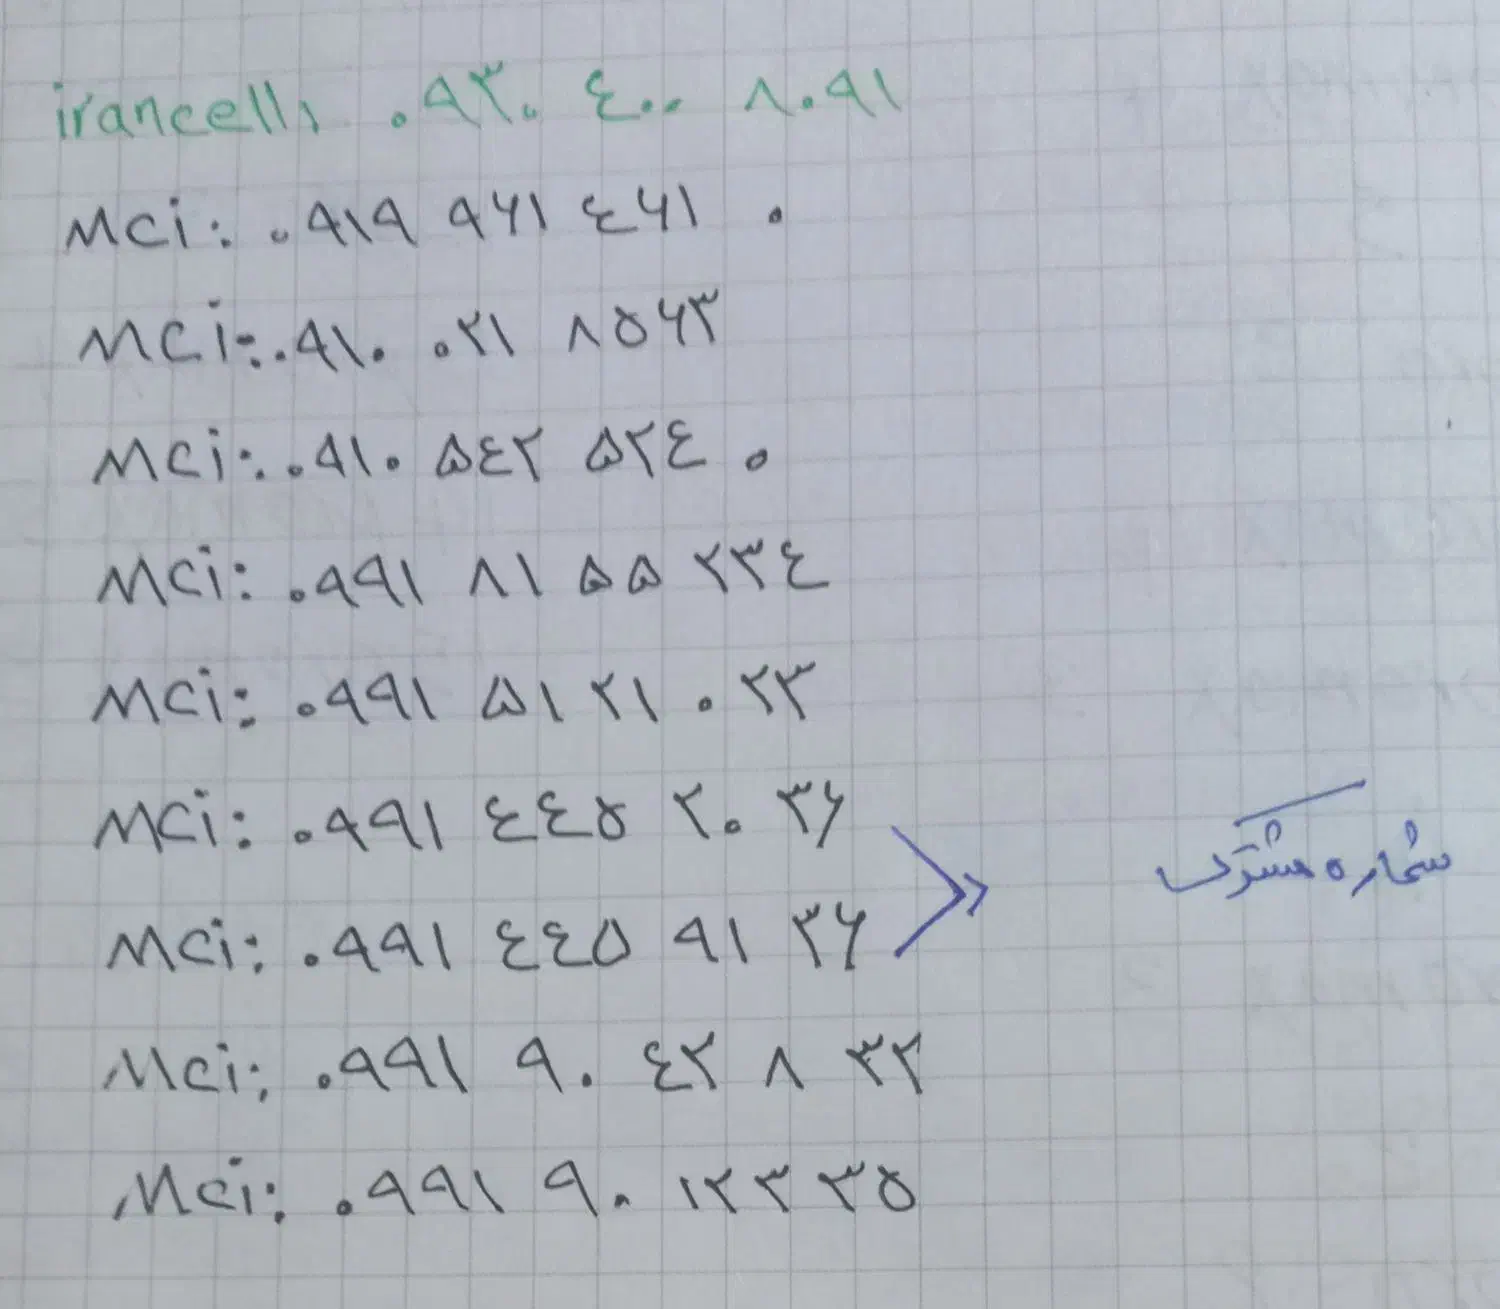 irancell: ۰۹۳۰ ۴۰۰ ۸۰۹۱
MCi: ۰۹۱۹ ۹۶۱ ۴۶۱ ۰
MCi: ۰۹۱۰ ۰۲۱ ۸۵۶۳
MCi: ۰۹۱۰ ۵۴۲ ۵۲۴ ۰
MCi: ۰۹۹۱ ۸۱ ۵۵ ۲۳۴
MCi: ۰۹۹۱ ۵۱ ۲۱ ۰ ۲۳
MCi: ۰۹۹۱ ۴۴۵ ۲۰ ۳۶
شماره مشترک
MCi: ۰۹۹۱ ۴۴۵ ۹۱ ۳۶
MCi: ۰۹۹۱ ۹۰ ۴۲ ۸ ۳۲
MCi: ۰۹۹۱ ۹۰ ۱۲۳ ۳۵